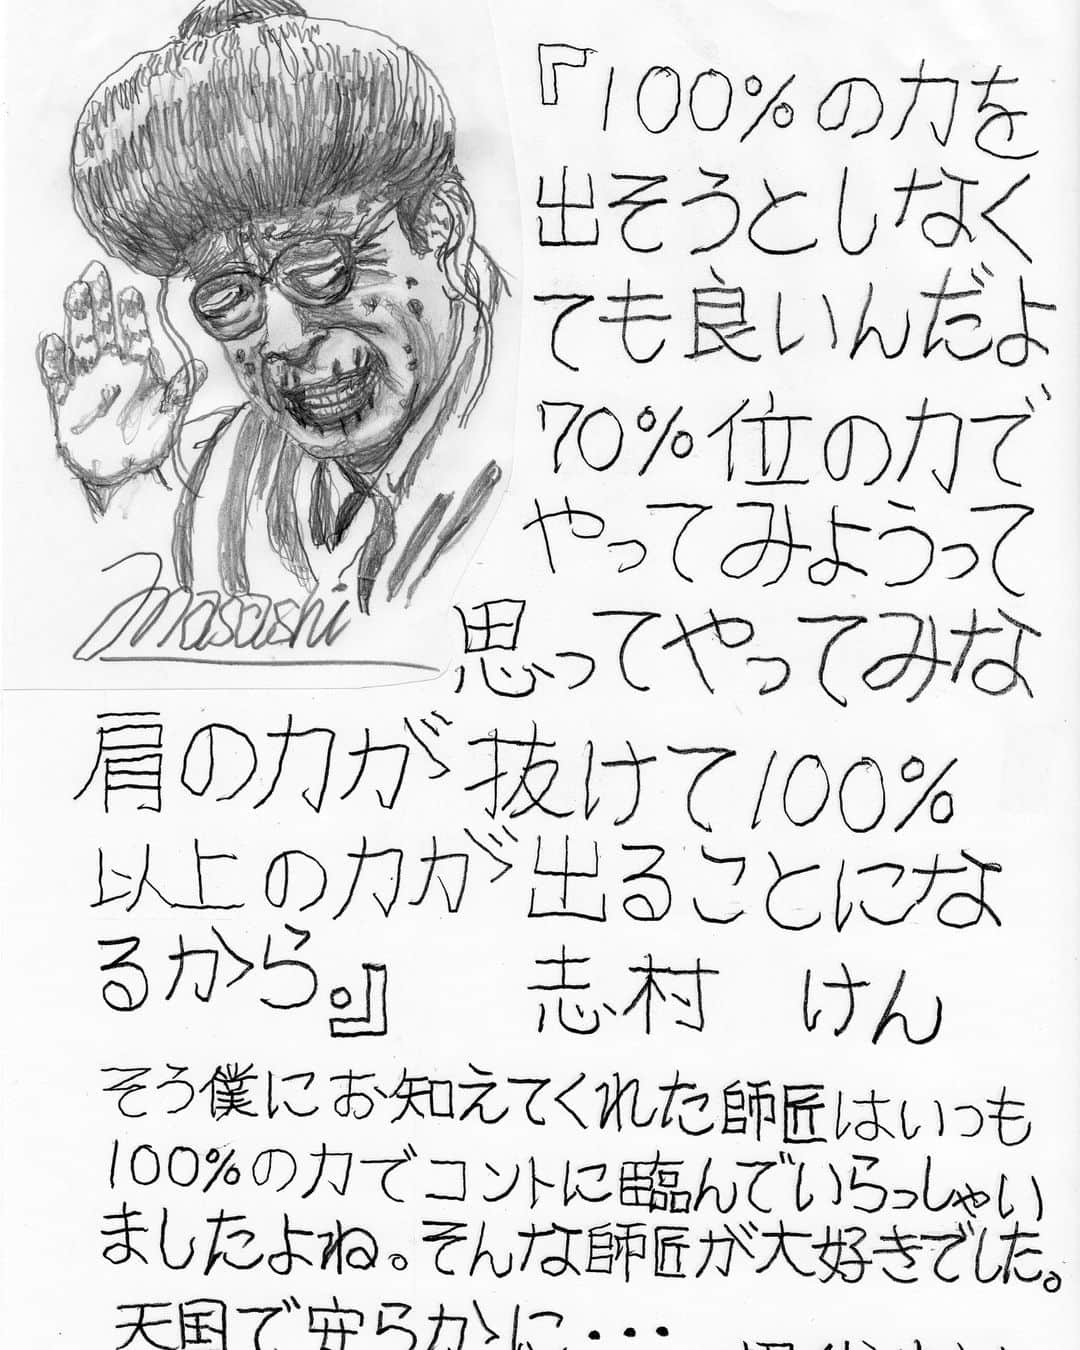 『100%の力を
出そうとしなく
ても良いんだよ
70%位の力で
やってみようって
思ってやってみな
肩の力が抜けて100%
以上の力が出ることにな
るから。』 志村 けん
masashi
そう僕にお知えてくれた師匠はいつも
100%の力でコントに臨んでいらっしゃい
ましたよね。そんな師匠が大好きでした。
天国で安らかに・・・